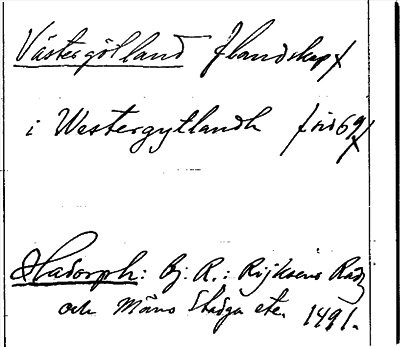 Västergötland [landskap]
i Westergytlandh [sid 69]
Hadorph: Bj. R.: Rijksens Rådz
och Mäns Stadga etc. 1491.